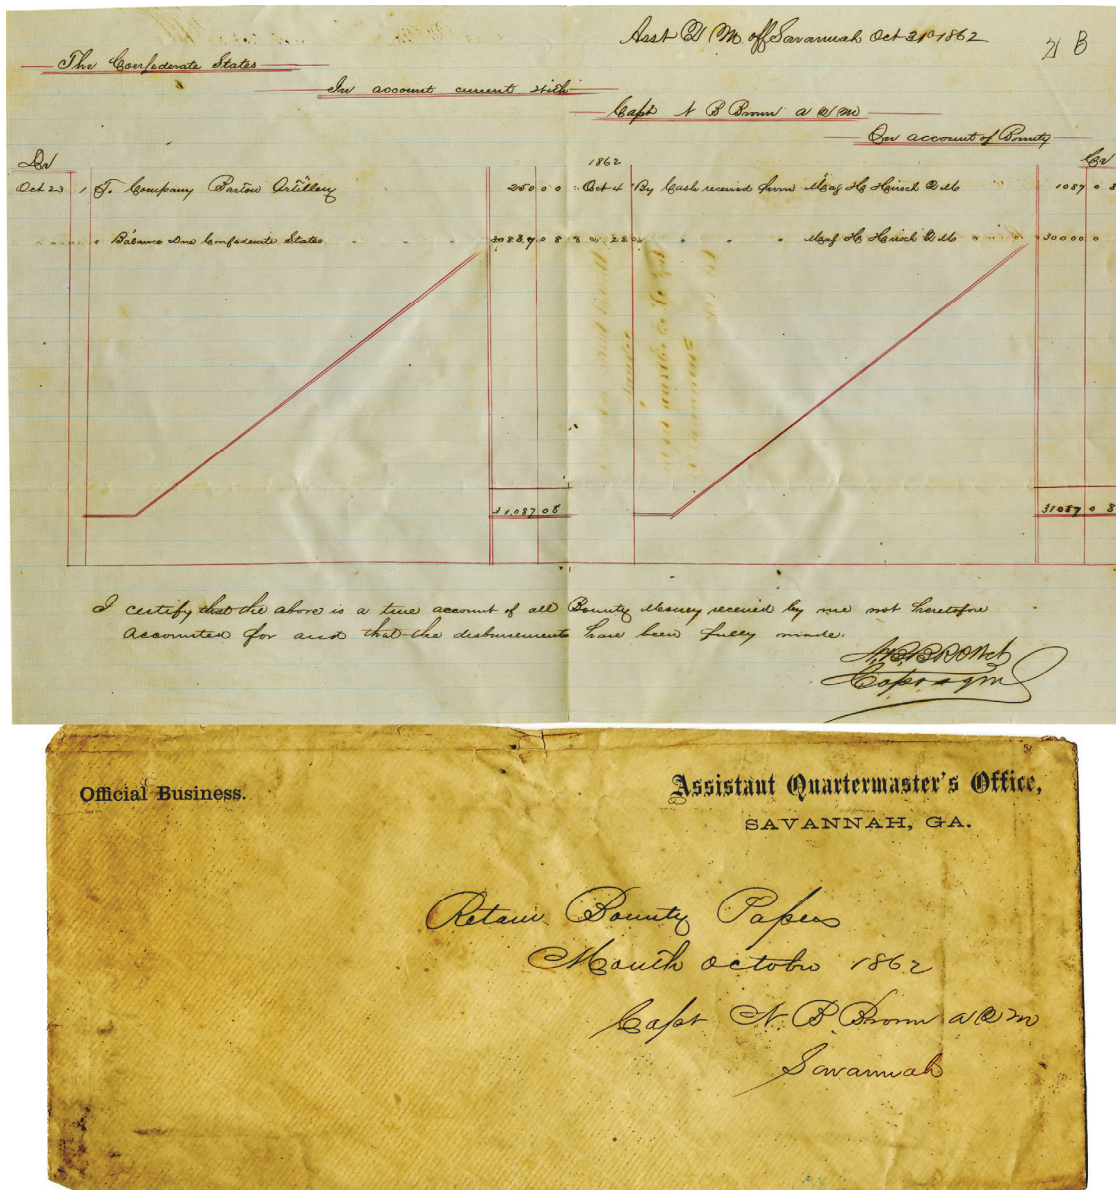 Asst Q M off Savannah Oct 31st 1862
B
The Confederate States
In account current with
Capt N B Brown a Q M
On account of Bounty
Dr
1862
Cr
Oct 23 1 To Company Bartow Artillery 250 00 Oct 4 By Cash received from Maj H Hirsch Q M 1087 08
" " Balance Due Confederate States " " " 30837 08 " " 22 " " " " Maj H Hirsch Q M " " 30000 0
31,087 08 31087 08
I certify that the above is a true account of all Bounty Money received by me not heretofore
accounted for and that the disbursements have been fully made.
N. B. BROWN
Capt & aqm
Official Business.
Assistant Quartermaster's Office,
SAVANNAH, GA.
Retain Bounty Papers
Month October 1862
Capt N. B Brown a Q M
Savannah